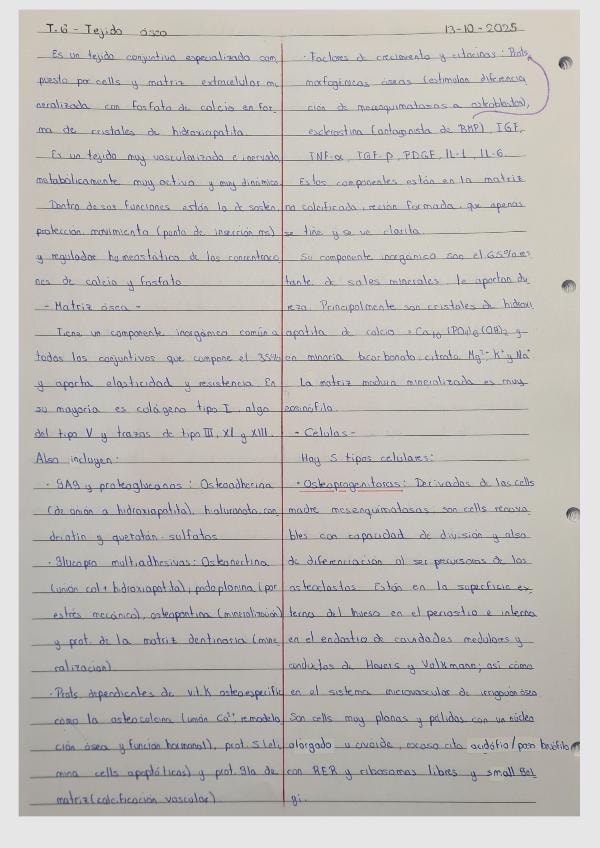 T.6 - Tejido óseo
13-10-2025
Es un tejido conjuntivo especializado com
puesto por cells y matriz extracelular mi
neralizada con fosfato de calcio en for
ma de cristales de hidroxiapatita.
Es un tejido muy vascularizado e inervado
metabólicamente muy activo y muy dinámico.
Dentro de sus funciones están la de sostén,
protección, movimiento (punto de inserción ms)
y regulador homeostático de las concentracio
nes de calcio y fosfato
- Matriz ósea -
Tiene un componente inorgánico común a
todos los conjuntivos que compone el 35%
y aporta elasticidad y resistencia. En
su mayoría es colágeno tipo I, algo
del tipo V y trazas de tipo III, XI y XIII.
Also incluyen:
· GAG y proteoglucanos: Osteoadherina
(de unión a hidroxiapatita), hialuronato, con
droitín y queratán-sulfatos
· Glucopro multiadhesivas: Osteonectina
(unión col + hidroxiapatita), podoplanina (por
estrés mecánico), osteopontina (mineralización)
y prot. de la matriz dentinaria (mine
ralización).
· Prots. dependientes de vit.K osteoespecífic
como la osteocalcina (unión Ca²⁺, remodela
ción ósea y función hormonal), prot. S (eli
mina cells apoptóticas) y prot. Gla de
matriz (calcificación vascular).
· Factores de crecimiento y citocinas: Prots.
morfogénicas óseas (estimulan diferencia
ción de mesenquimatosas a osteoblastos),
esclerostina (antagonista de BMP), IGF,
TNF-α, TGF-β, PDGF, IL-1, IL-6.
Estos componentes están en la matriz
no calcificada, recién formada, que apenas
se tiñe y se ve clarita.
Su componente inorgánico son el 65% res
tante de sales minerales, le aportan du
reza. Principalmente son cristales de hidroxi
apatita de calcio = Ca₁₀(PO₄)₆(OH)₂ y
en minoría bicarbonato, citrato, Mg²⁺, K⁺ y Na⁺
La matriz madura mineralizada es muy
eosinófila.
- Células -
Hay 5 tipos celulares:
· Osteoprogenitoras: Derivadas de las cells
madre mesenquimatosas, son cells renova
bles con capacidad de división y also
de diferenciación al ser precursoras de los
osteoclastos. Están en la superficie ex
terna del hueso en el periostio e interna
en el endostio de cavidades medulares y
conductos de Havers y Volkmann; así como
en el sistema microvascular de irrigación ósea
Son cells muy planas y pálidas con un núcleo
alargado u ovoide, escaso cito acidófilo/poco basófilo
con RER y ribosomas libres y small Gol
gi.